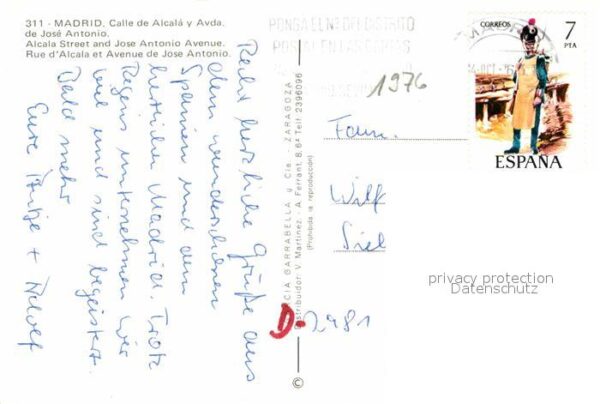 311 - MADRID. Calle de Alcalá y Avda.
de José Antonio.
Alcala Street and Jose Antonio Avenue.
Rue d'Alcala et Avenue de Jose Antonio.
Recht herzliche Grüße aus
dem wunderschönen
Spanien und dem
herrlichen Madrid. Trotz
Regens unternehmen wir
viel und sind begeistert.
Bald mehr
Eure Antje +
GARRABELLA y Cia. - ZARAGOZA
Distribuidor: V. Martinez - A. Ferrant, 8, 6º Telf. 2396096
(Prohibida la reproducción)
©
PONGA EL Nº DEL DISTRITO
POSTAL EN LAS CARTAS
1976
CORREOS
7
PTA
ESPAÑA
Fam.
Wilf
Siel
D. 2981
privacy protection
Datenschutz